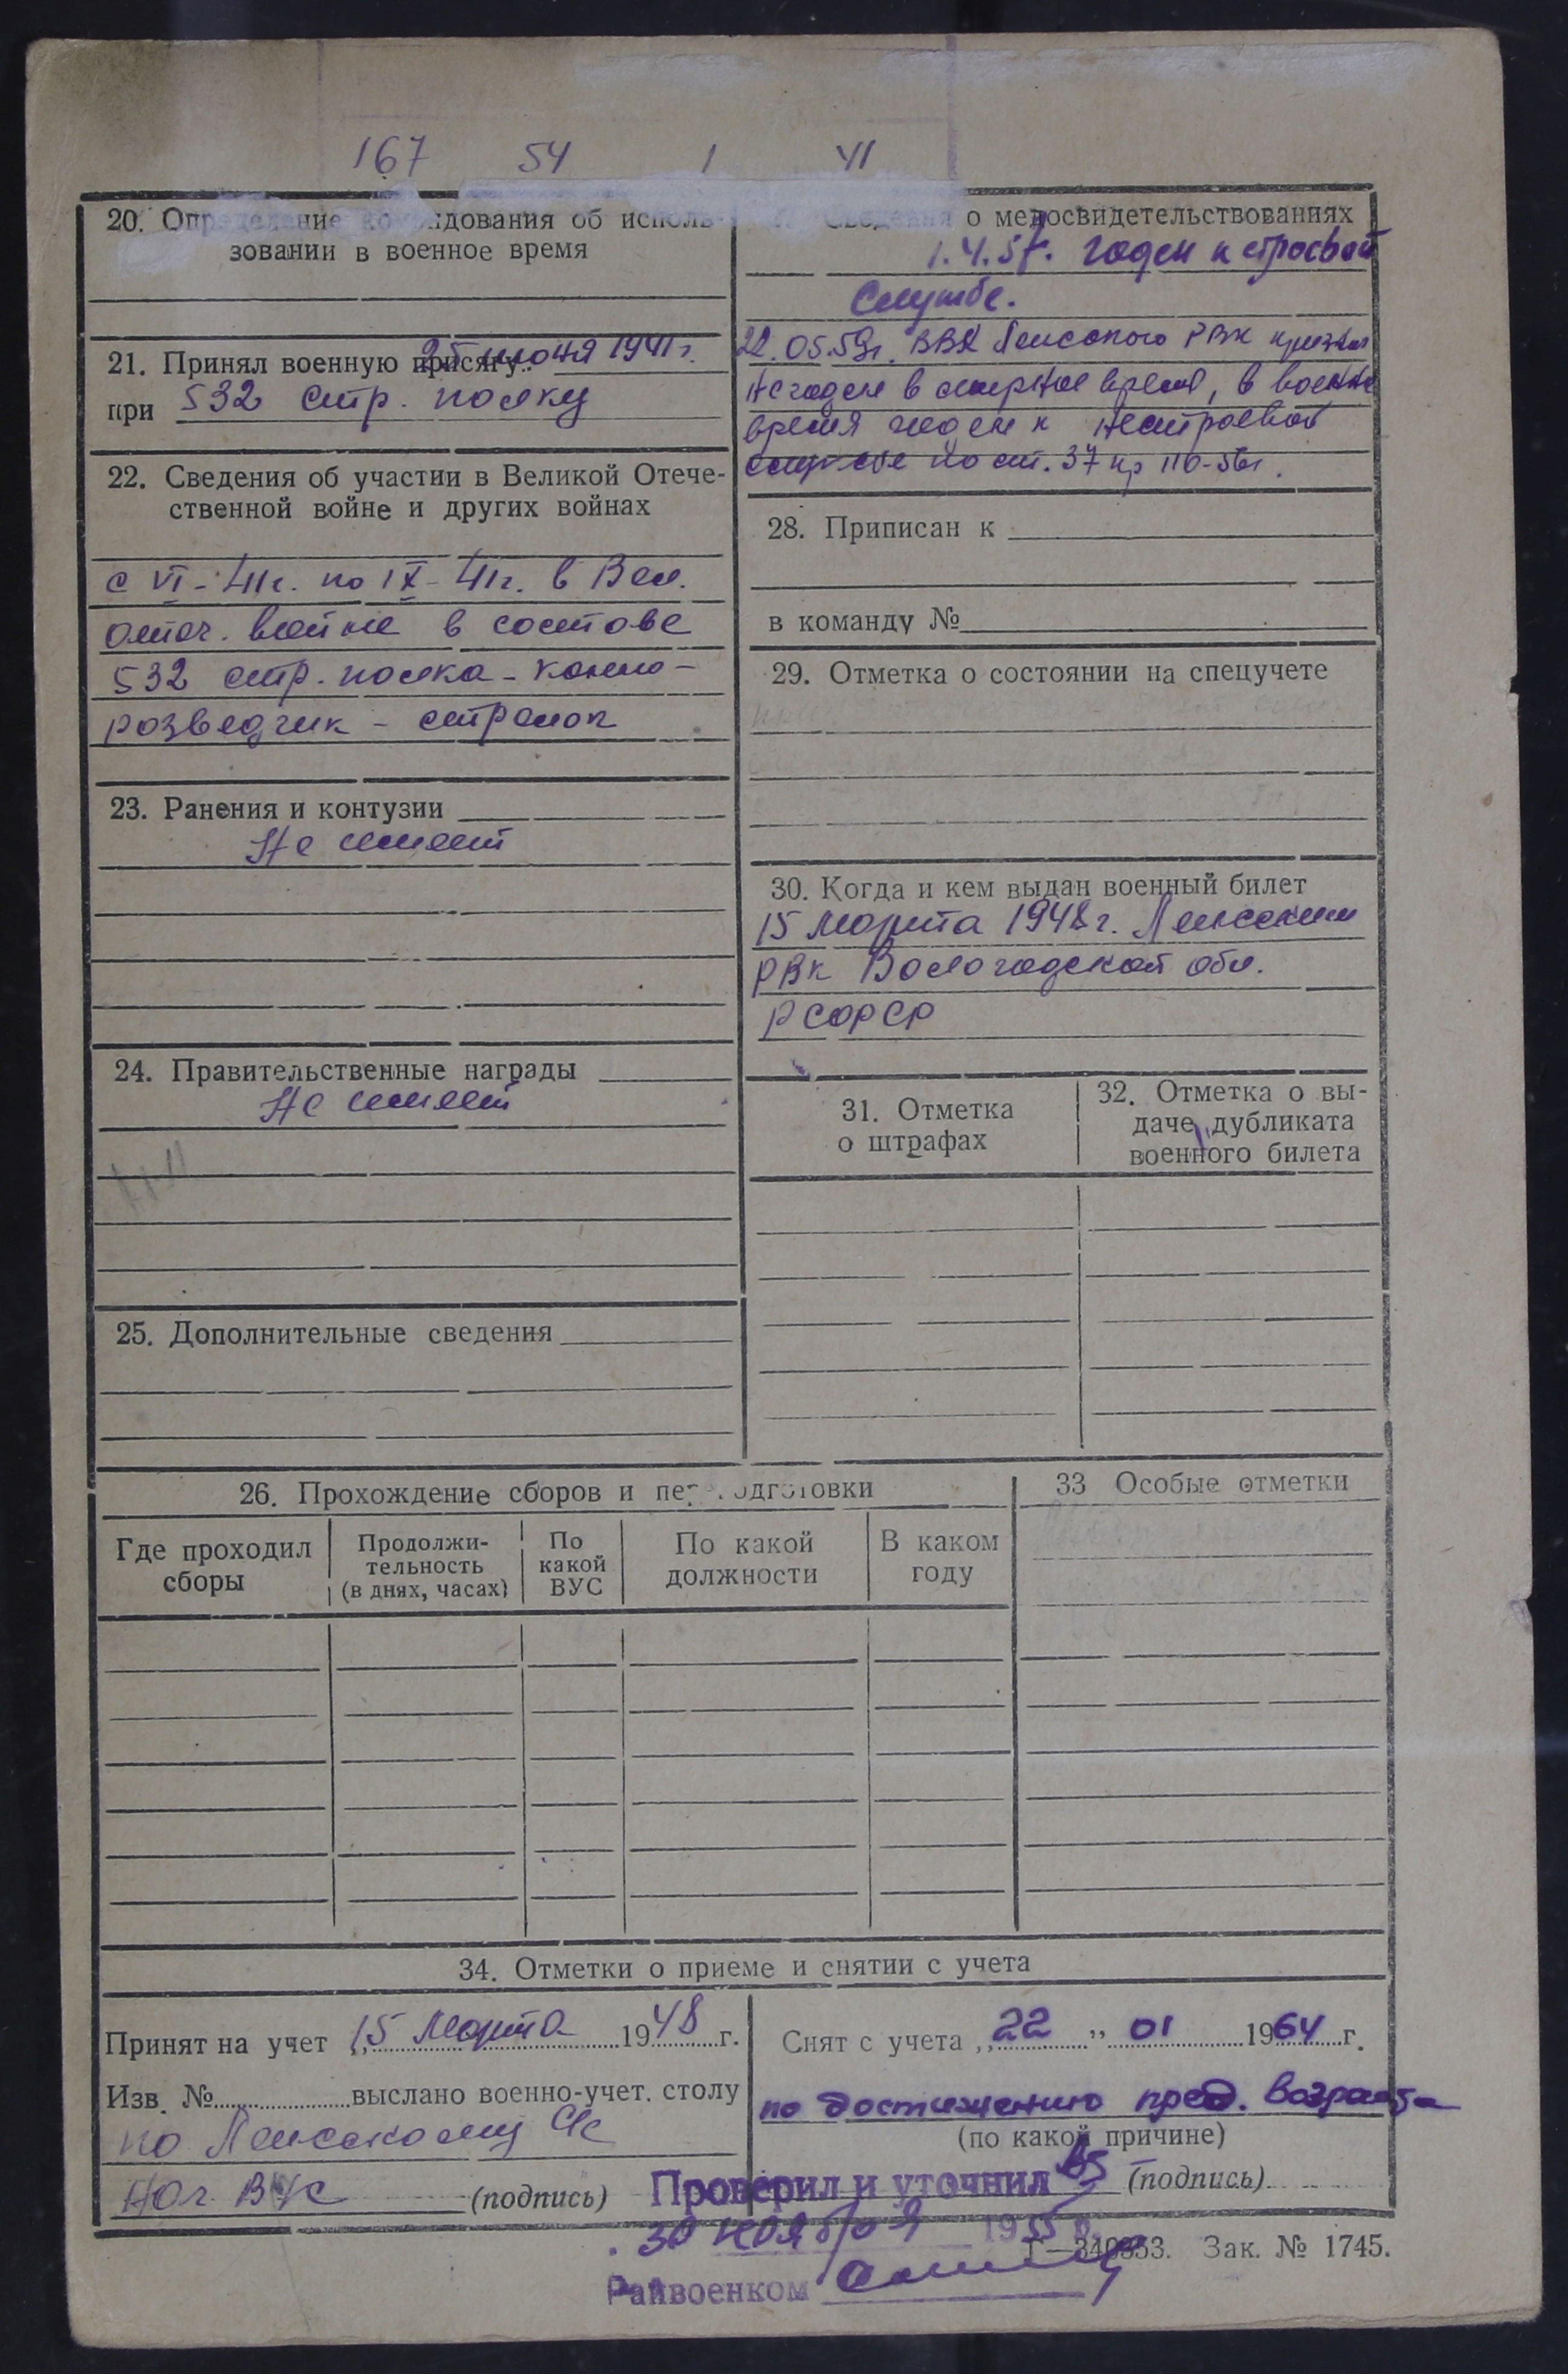 167 54 1 41
20. Определение командования об исполь-
зовании в военное время
21. Принял военную присягу 25 июня 1941 г.
при 532 стр. полку
22. Сведения об участии в Великой Отече-
ственной войне и других войнах
с VI-41г. по IX-41г. в Вел.
отеч. войне в составе
532 стр. полка - конно-
розведчик - стрелок
23. Ранения и контузии
Не имеет
24. Правительственные награды
Не имеет
25. Дополнительные сведения
Сведения о медосвидетельствованиях
1.4.57. годен к строевой
службе.
22.05.59г. ВВК Ленского РВК признан
негоден в мирное время, в военное
время годен к нестроевой
службе по ст. 37 пр 110-56г.
28. Приписан к
в команду №
29. Отметка о состоянии на спецучете
30. Когда и кем выдан военный билет
15 марта 1948 г. Ленским
РВК Вологодской обл.
РСФСР
31. Отметка
о штрафах
32. Отметка о вы-
даче дубликата
военного билета
26. Прохождение сборов и переподготовки
Где проходил
сборы
Продолжи-
тельность
(в днях, часах)
По
какой
ВУС
По какой
должности
В каком
году
33 Особые отметки
34. Отметки о приеме и снятии с учета
Принят на учет „15 марта 1948 г.
Изв. № выслано военно-учет. столу
по Ленскому
Нач ВУС (подпись)
Снят с учета „22" 01 1964 г.
по достижению пред. возраста
(по какой причине)
(подпись)
Проверил и уточнил
30 ноября 1955 г.
Райвоенком
Г—340353. Зак. № 1745.